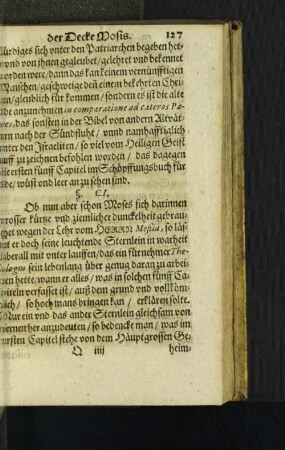 der Decke Mosis. 127
ürdiges sich vnter den Patriarchen begeben het-
vnd von ihnen geglaubet/ gelehret vnd bekennet
worden were/ dann das kan keinem vernünfftigen
Menschen/ geschweige deñ einem bekehrten Chri-
n/ glenblich für kommen/ sondern es ist die alte
de anzunehmen in comparatione ad cateros Pa-
es, das sonsten in der Bibel von andern Altvät-
rn nach der Sündfluht/ vnnd namhafftiglich
nter den Israeliten/ so viel vom Heiligen Geist
auff zu zeichnen befohlen worden/ das dagegen
ie ersten fünff Capitel im Schöpffungsbuch für
de/ wüst vnd leer an zu sehen sind.
§. CI.
Ob nun aber schon Moses sich darinnen
grosser kürtze vnd ziemlicher dunckelheit gebrau-
het wegen der Lehr vom HERRN Messia, so läs-
t er doch seine leuchtende Sternlein in warheit
überall mit vnter lauffen/ das ein fürnehmer The-
ologus sein lebenlang über genug daran zu arbei-
en hette/ wann er alles/ was in solchen fünff Ca-
iteln verfasset ist/ auß dem grund vnd vollköm-
ich/ so hoch mans bringen kan/ erklären solte.
Nur ein vnd das ander Sternlein gleichsam von
ernen her anzudeuten/ so bedencke man/ was im
ersten Capitel stehe von dem Hauptgrossen Ge-
Q iiij heim-